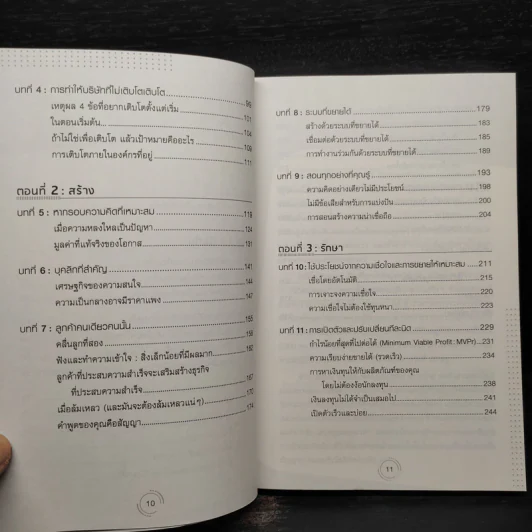 บทที่ 4 : การทำให้บริษัทที่ไม่เติบโตเติบโต
เหตุผล 4 ข้อที่อยากเติบโตตั้งแต่เริ่ม 101
ในตอนเริ่มต้น 104
ถ้าไม่ใช่เพื่อเติบโต แล้วเป้าหมายคืออะไร 109
การเติบโตภายในองค์กรที่อยู่ 111
ตอนที่ 2 : สร้าง
บทที่ 5 : หากรอบความคิดที่เหมาะสม 119
เมื่อความหลงใหลเป็นปัญหา 124
มูลค่าที่แท้จริงของโอกาส 131
บทที่ 6 : บุคลิกที่สำคัญ
เศรษฐกิจของความสนใจ 144
ความเป็นกลางอาจมีราคาแพง 147
บทที่ 7 : ลูกค้าคนเดียวคนนั้น 155
คลื่นลูกที่สอง 158
ฟังและทำความเข้าใจ : สิ่งเล็กน้อยที่มีผลมาก
ลูกค้าที่ประสบความสำเร็จจะเสริมสร้างธุรกิจ
ที่ประสบความสำเร็จ 167
เมื่อล้มเหลว (และมันจะต้องล้มเหลวแน่ๆ) 170
คำพูดของคุณคือสัญญา 174
10
บทที่ 8 : ระบบที่ขยายได้ 179
สร้างด้วยระบบที่ขยายได้ 183
เชื่อมต่อด้วยระบบที่ขยายได้ 185
การทำงานร่วมกันด้วยระบบที่ขยายได้ 189
บทที่ 9 : สอนทุกอย่างที่คุณรู้ 193
ความคิดอย่างเดียวไม่มีประโยชน์ 198
ไม่มีข้อเสียสำหรับการแบ่งปัน 200
การสอนสร้างความน่าเชื่อถือ 204
ตอนที่ 3 : รักษา
บทที่ 10 : ใช้ประโยชน์จากความเชื่อใจและการขยายให้เหมาะสม 211
เชื่อโดยอัตโนมัติ 215
การเจาะจงความเชื่อใจ 220
ความเชื่อใจไม่ต้องใช้ทุนหนา 223
บทที่ 11 : การเปิดตัวและปรับเปลี่ยนทีละนิด 229
กำไรน้อยที่สุดที่ไปต่อได้ (Minimum Viable Profit: MVPr) 231
ความเรียบง่ายขายได้ (รวดเร็ว) 234
การหาเงินทุนให้กับผลิตภัณฑ์ของคุณ
โดยไม่ต้องง้อนักลงทุน 238
เงินลงทุนไม่ได้จำเป็นเสมอไป 241
เปิดตัวเร็วและบ่อย 244
11